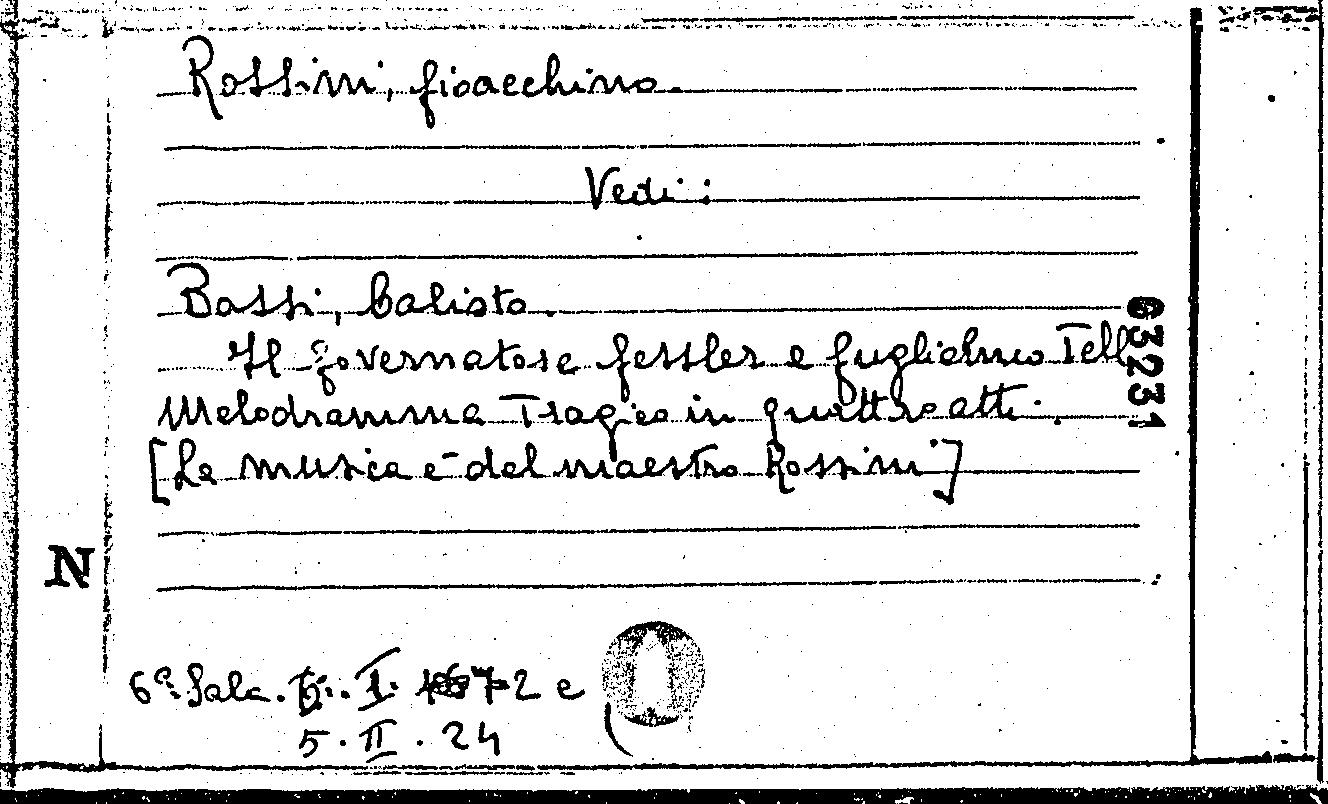 Rossini, Gioacchino.
Vedi:
Bassi, Calisto.
Il Governatore Gessler e Guglielmo Tell
Melodramma Tragico in quattro atti.
[La musica è del maestro Rossini]
63231
N
6ª Sala. I. 2 e
5. II. 24